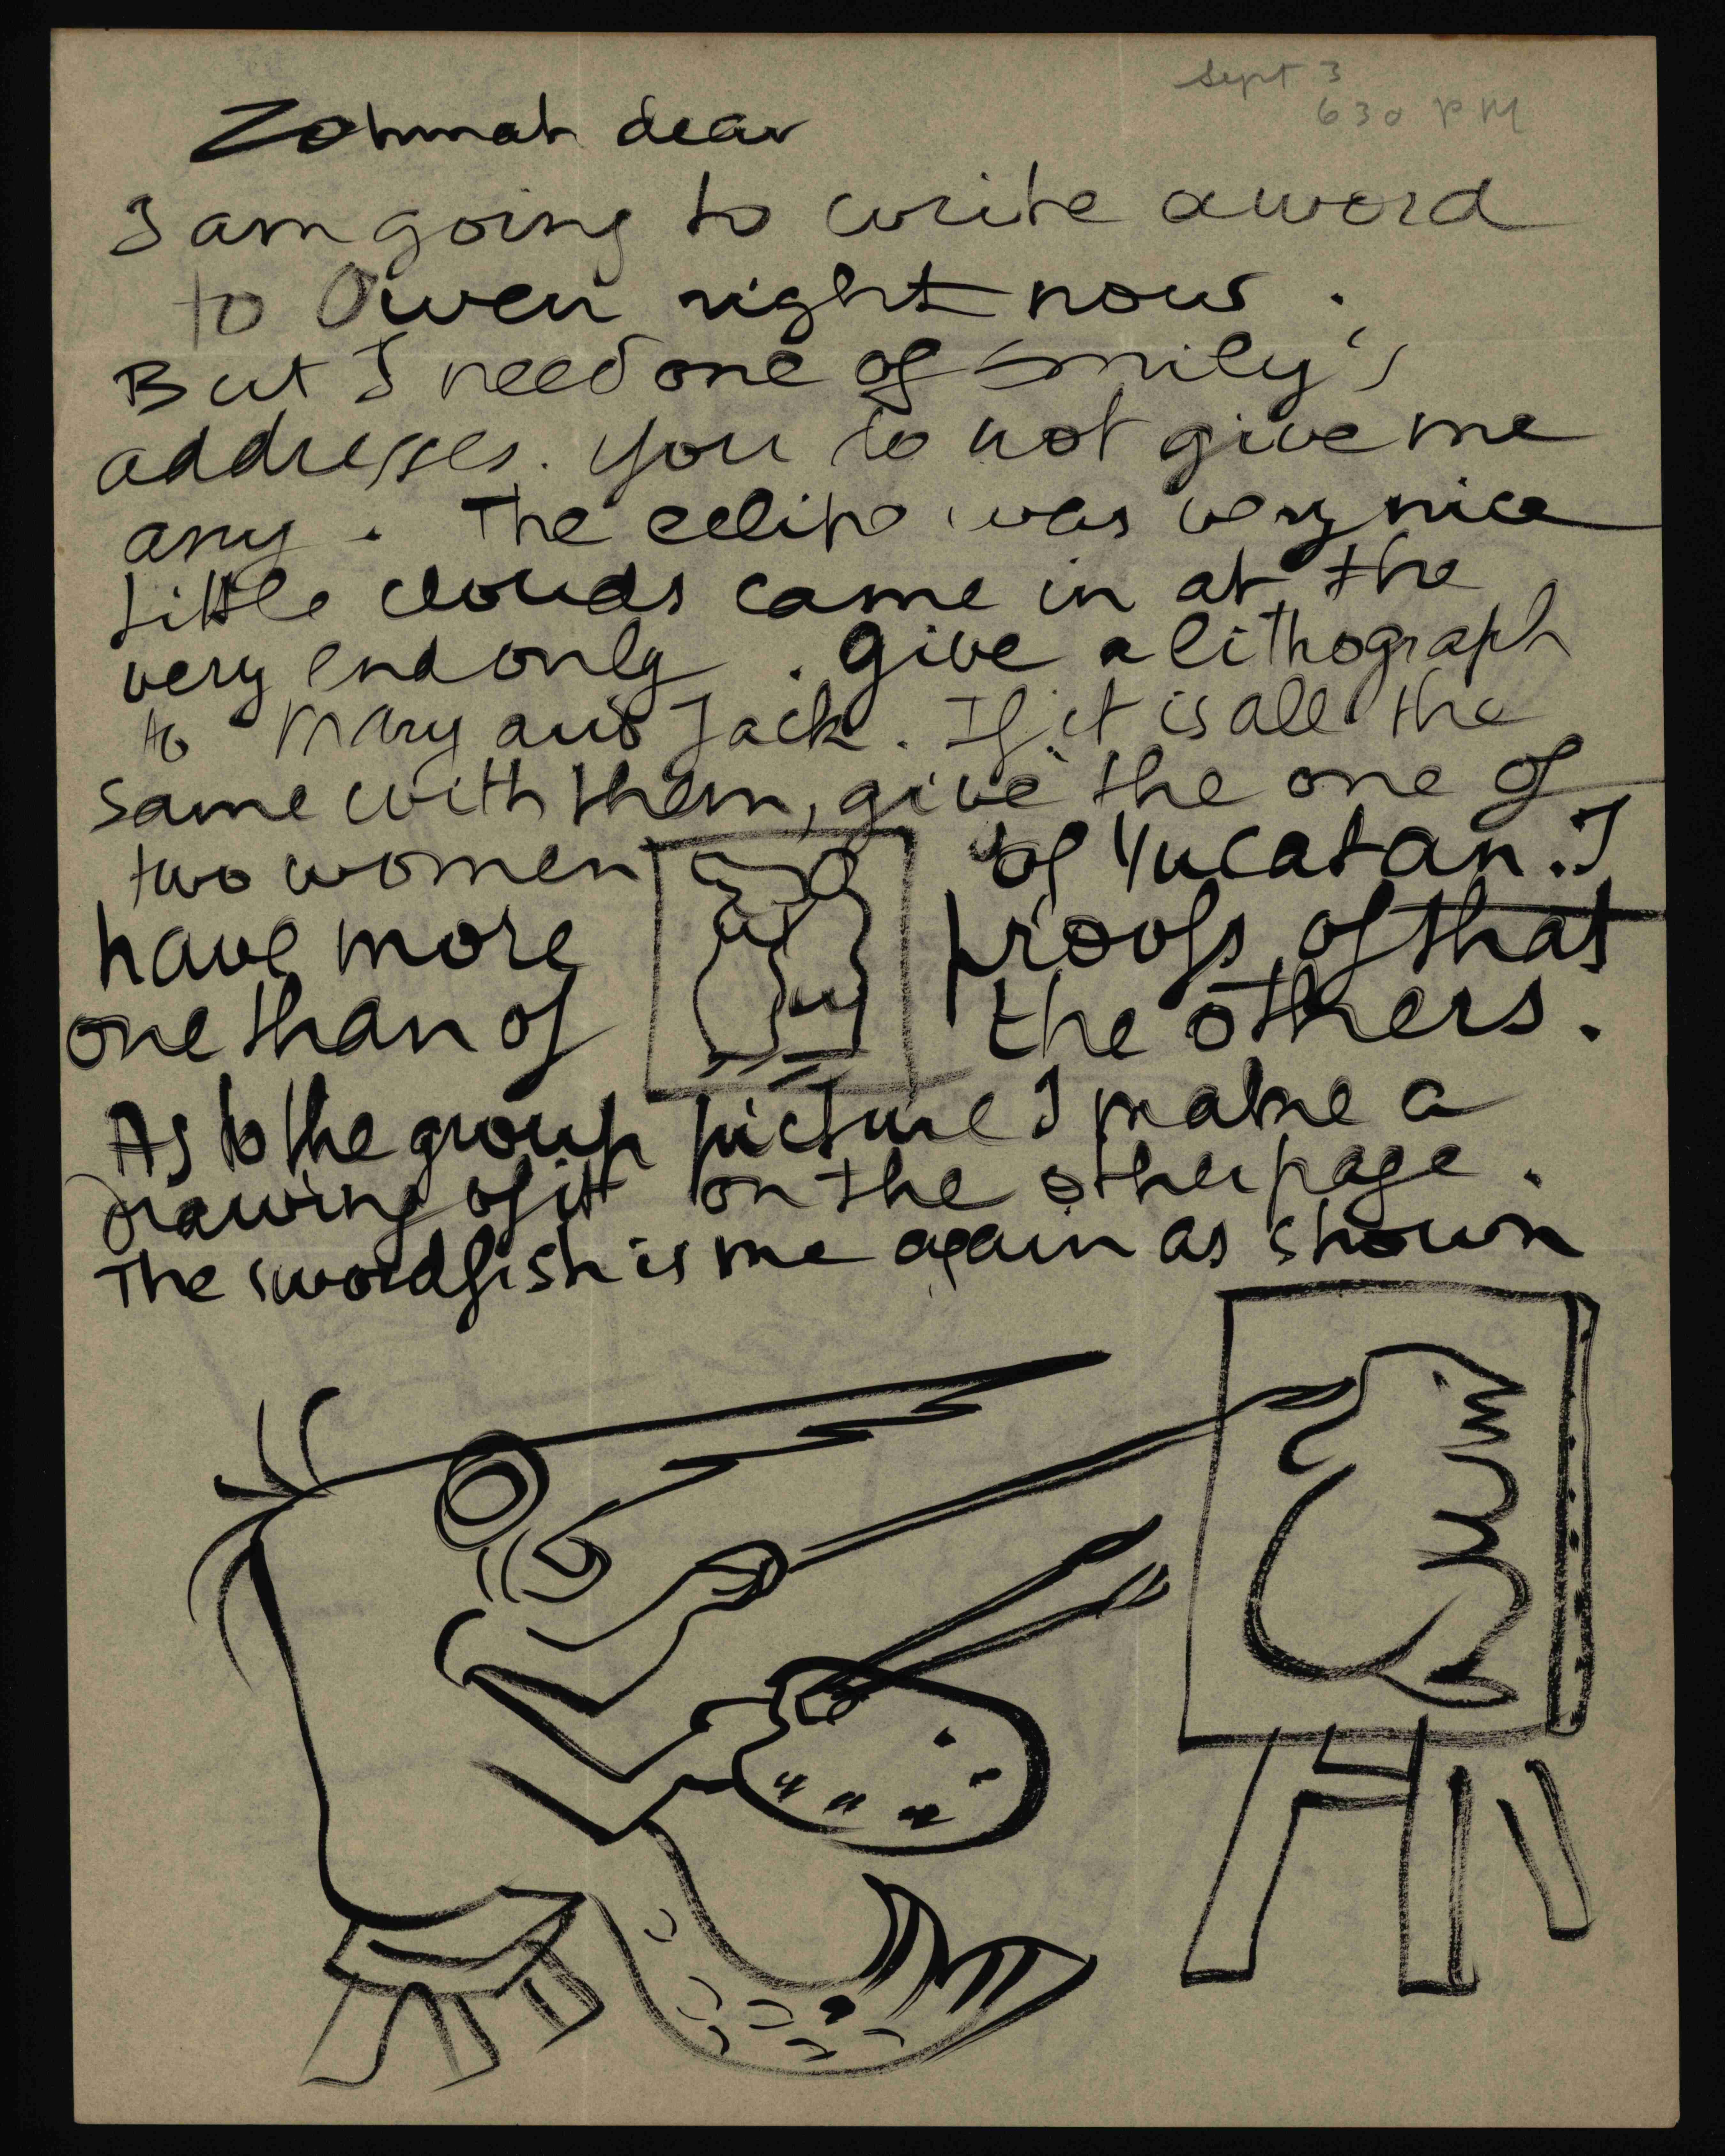 Sept 3
6 30 PM
Zohmah dear
I am going to write a word
to Owen right now.
But I need one of Emily's
addresses. You do not give me
any. The was very nice
little clouds came in at the
very end only. Give a lithograph
to Mary and Jack. If it is all the
same with them, give the one of
two women of Yucatan. I
have more proofs of that
one than of the others.
As to the group picture I make a
drawing of it on the other page.
The swordfish is me again as shown